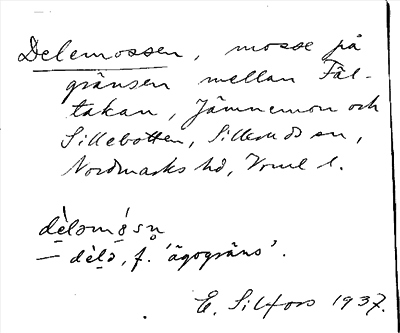 Delemossen, mosse på
gränsen mellan Fäl-
takan, Jämnemon och
Sillebotten, Sillerud sn,
Nordmarks hd, Vrml l.
dèləmo̱sn̥
— dèlə, f. 'ägogräns'.
E. Silfors 1937.